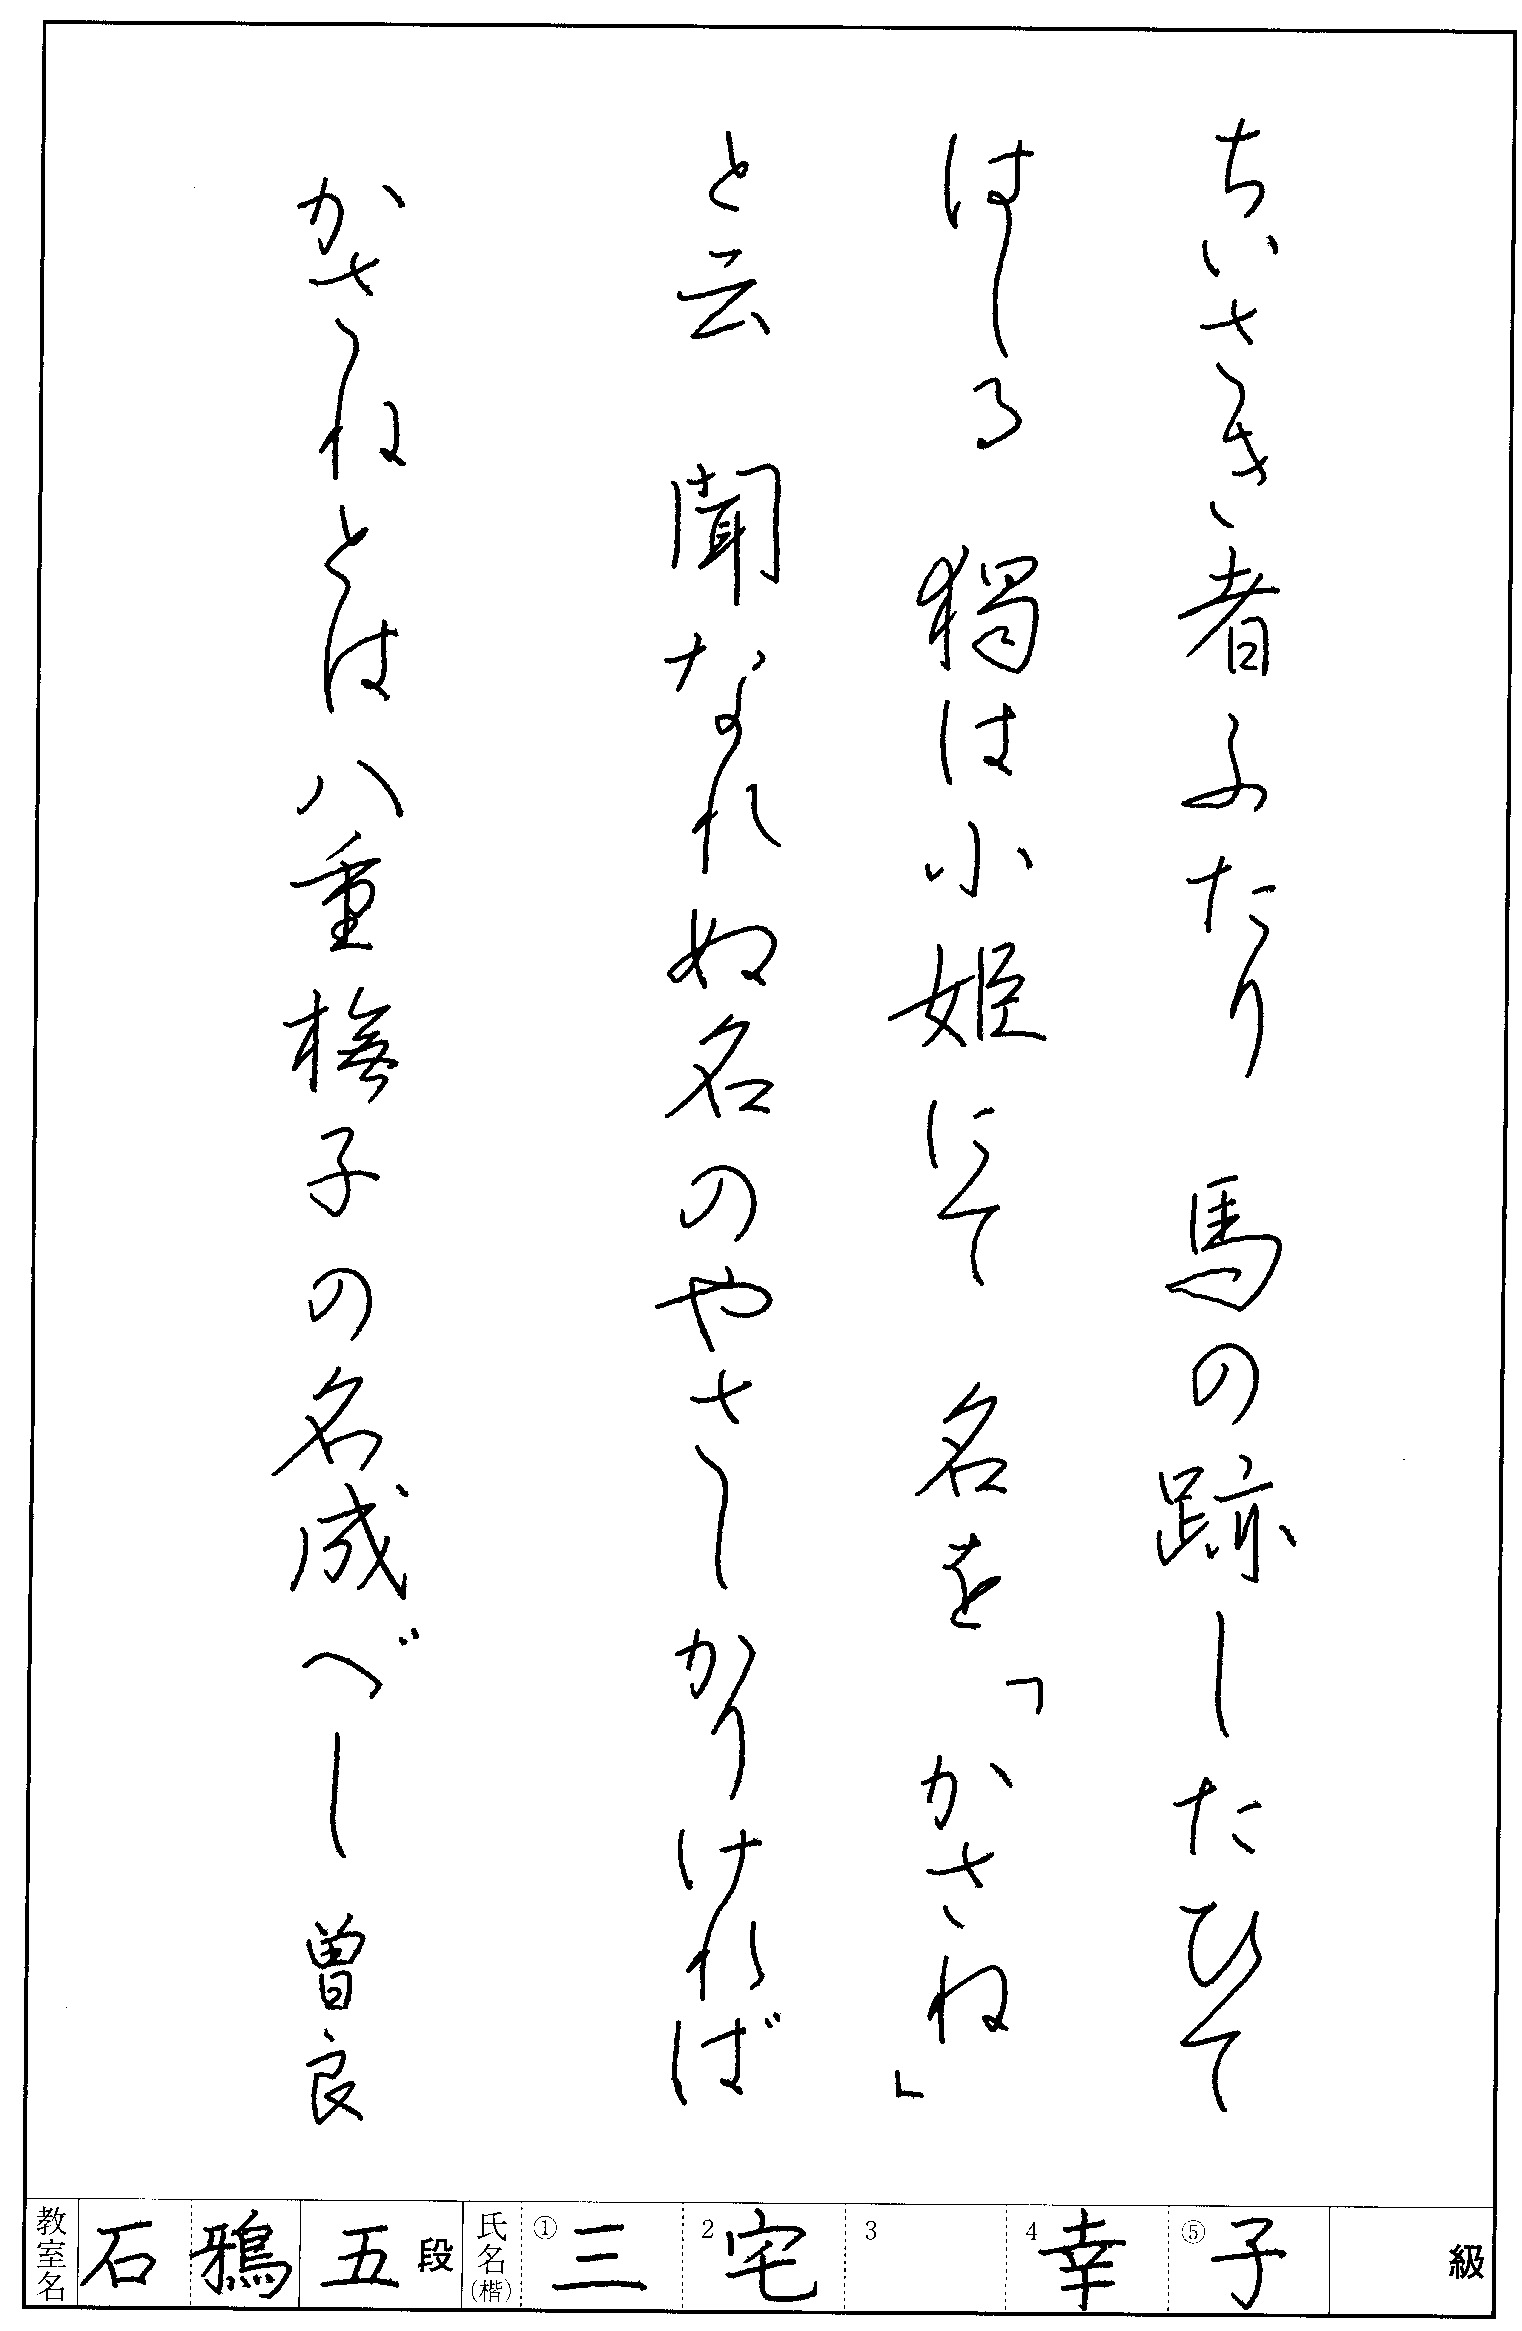 ちいさき者ふたり 馬の跡したひて
はしる 獨は小姫にて 名を「かさね」
と云 聞なれぬ名のやさしかりければ
かさねとは八重撫子の名成べし 曽良
教室名 石鴉 五段 氏名(楷) ①三 2宅 3 4幸 ⑤子 級